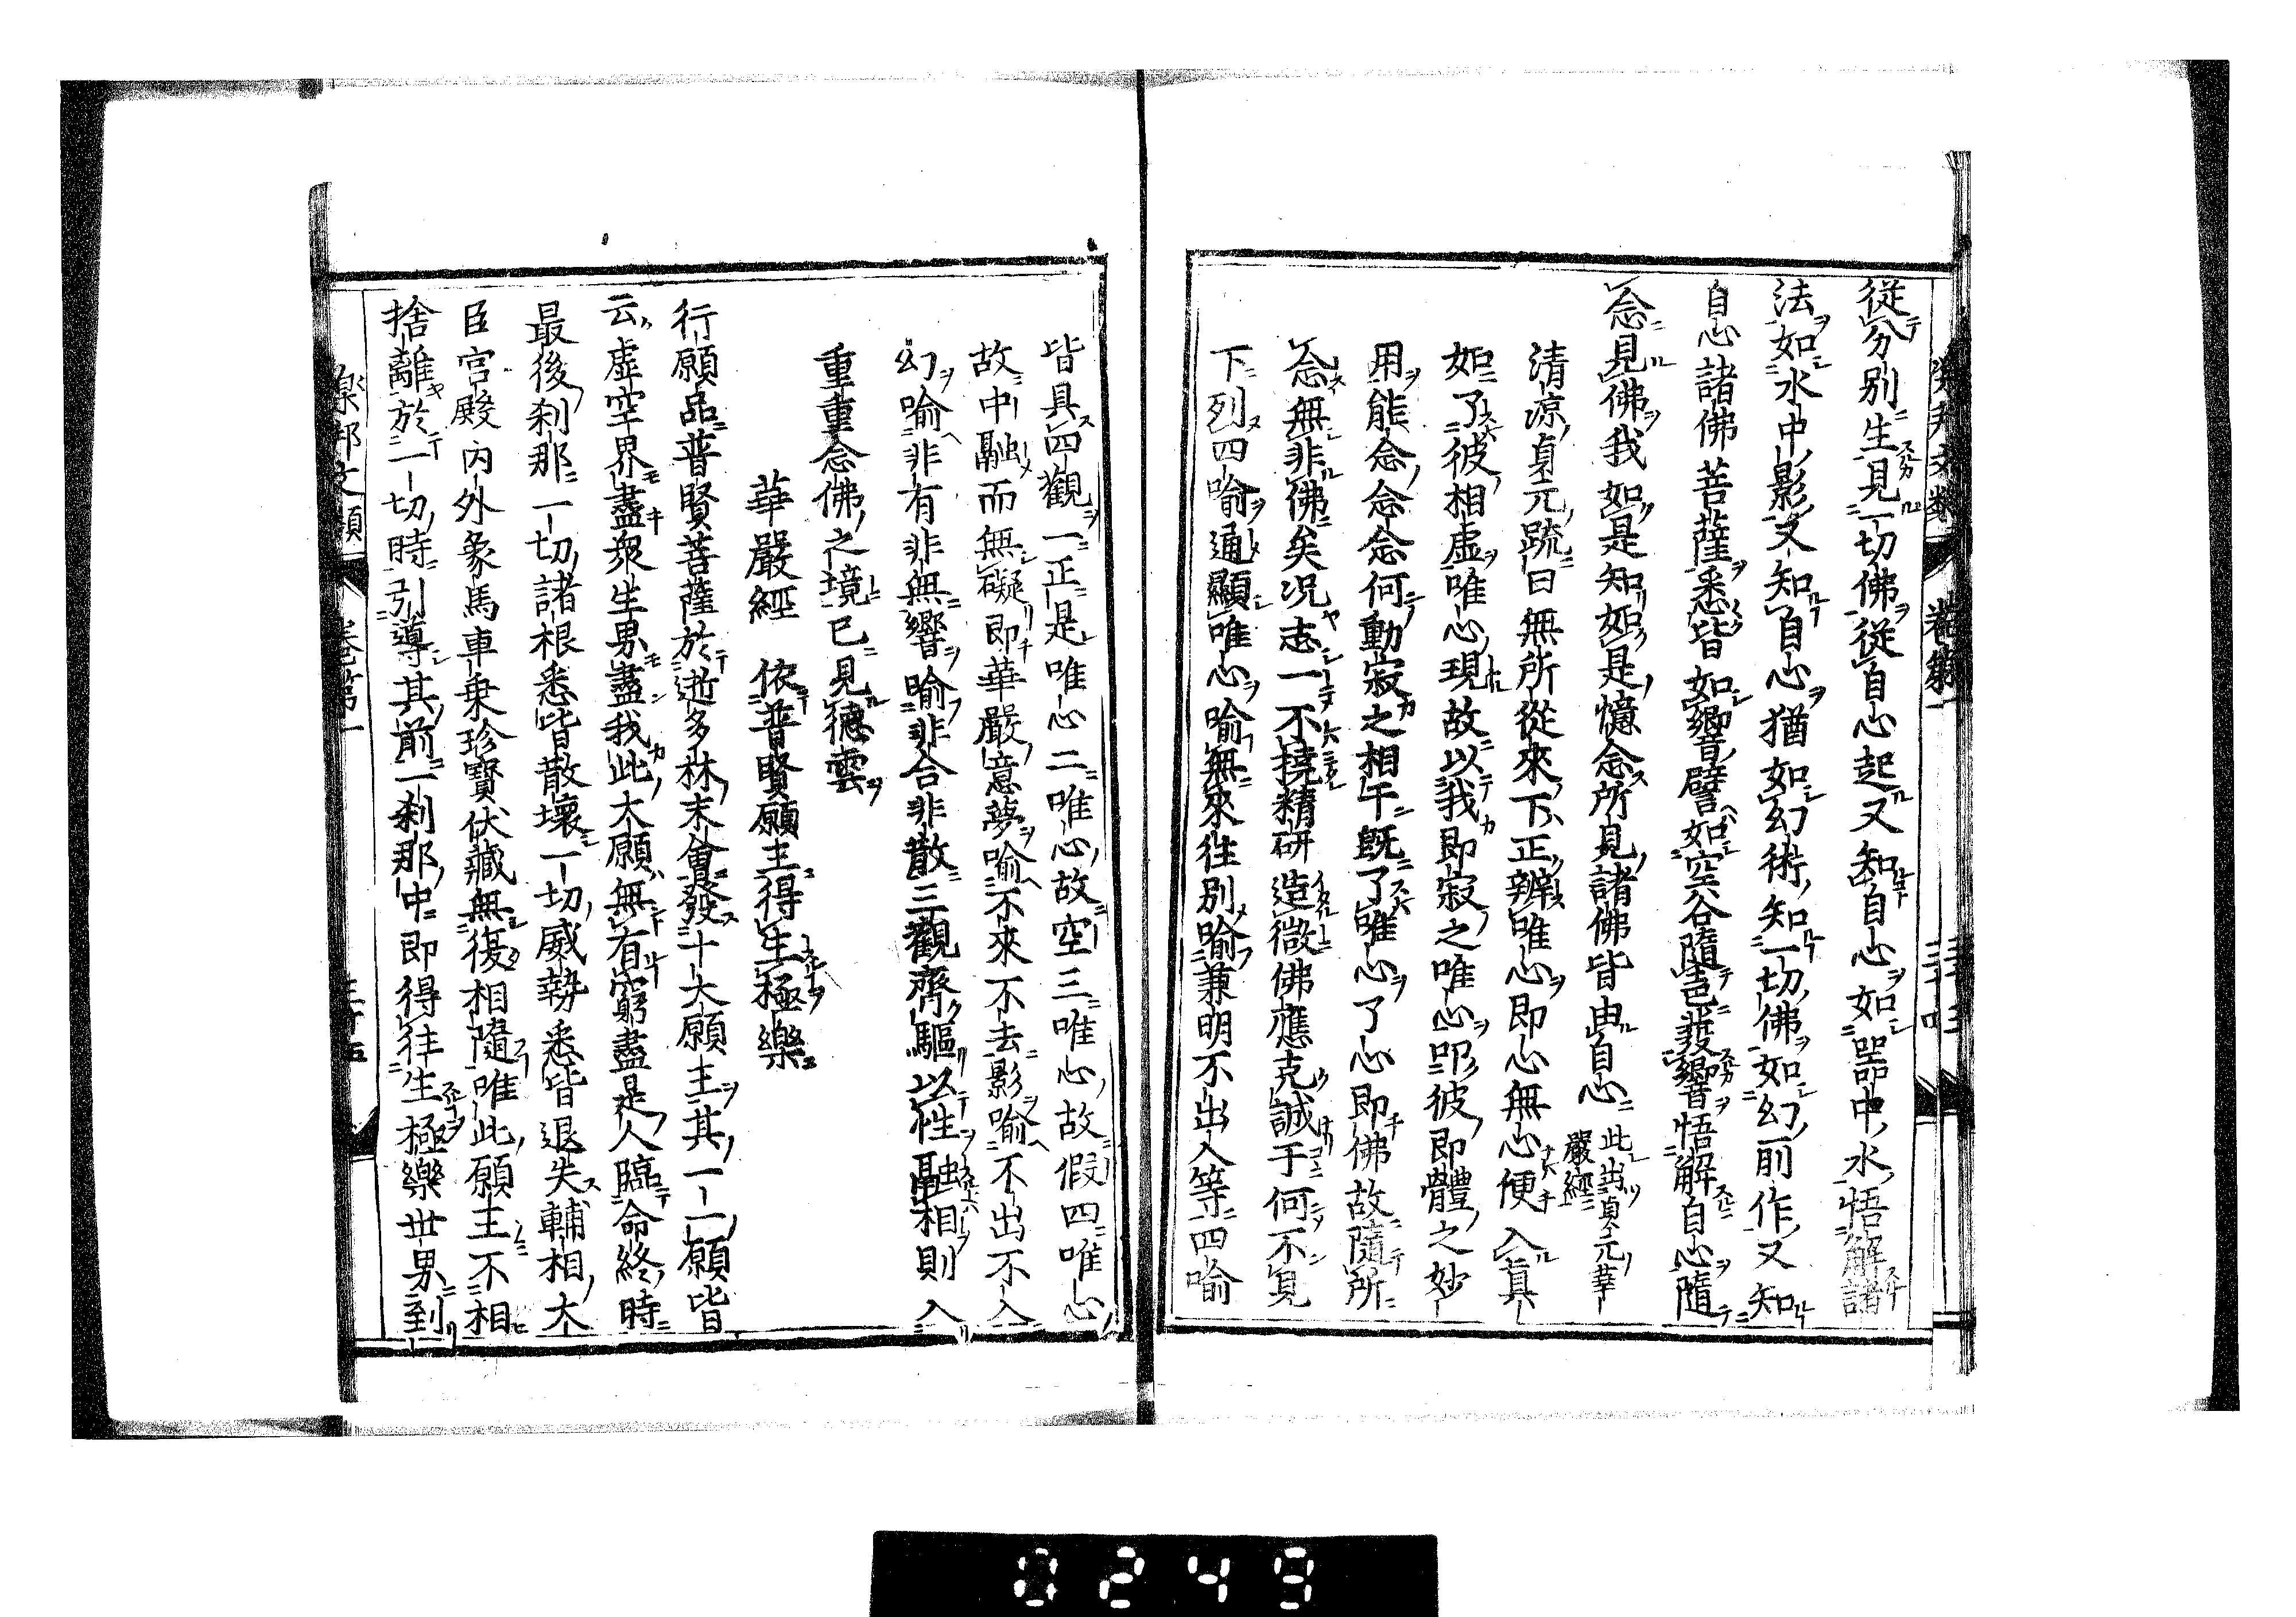 樂邦文類 卷第一 三十四
從分別生見一切佛從自心起又知自心如器中水悟解諸
法如水中影又知自心猶如幻術知一切佛如幻所作又知
自心諸佛菩薩悉皆如響譬如空谷隨聲發響悟解自心隨
念見佛我如是知如是憶念所見諸佛皆由自心此出貞元華
嚴經
清涼貞元疏曰無所從來下正辨唯心即心無心便入真
如了彼相虛唯心現故以我即寂之唯心即彼即體之妙
用能念念念何動寂之相干既了唯心了心即佛故隨所
念無非佛矣况志一不撓精研造微佛應克誠于何不見
下列四喻通顯唯心喻無來往別喻兼明不出入等四喻
皆具四觀一正是唯心二唯心故空三唯心故假四唯心
故中融而無礙即華嚴意夢喻不來不去影喻不出不入
幻喻非有非無響喻非合非散三觀齊驅以性融相則入
重重念佛之境已見德雲
華嚴經 依普賢願主得生極樂
行願品普賢菩薩於逝多林末會發十大願主其一一願皆
云虛空界盡衆生界盡我此大願無有窮盡是人臨命終時
最後剎那一切諸根悉皆散壞一切威勢悉皆退失輔相大
臣宮殿內外象馬車乘珍寶伏藏無復相隨唯此願王不相
捨離於一切時引導其前一剎那中即得往生極樂世界到
樂邦文類 卷第一 三十五
0249